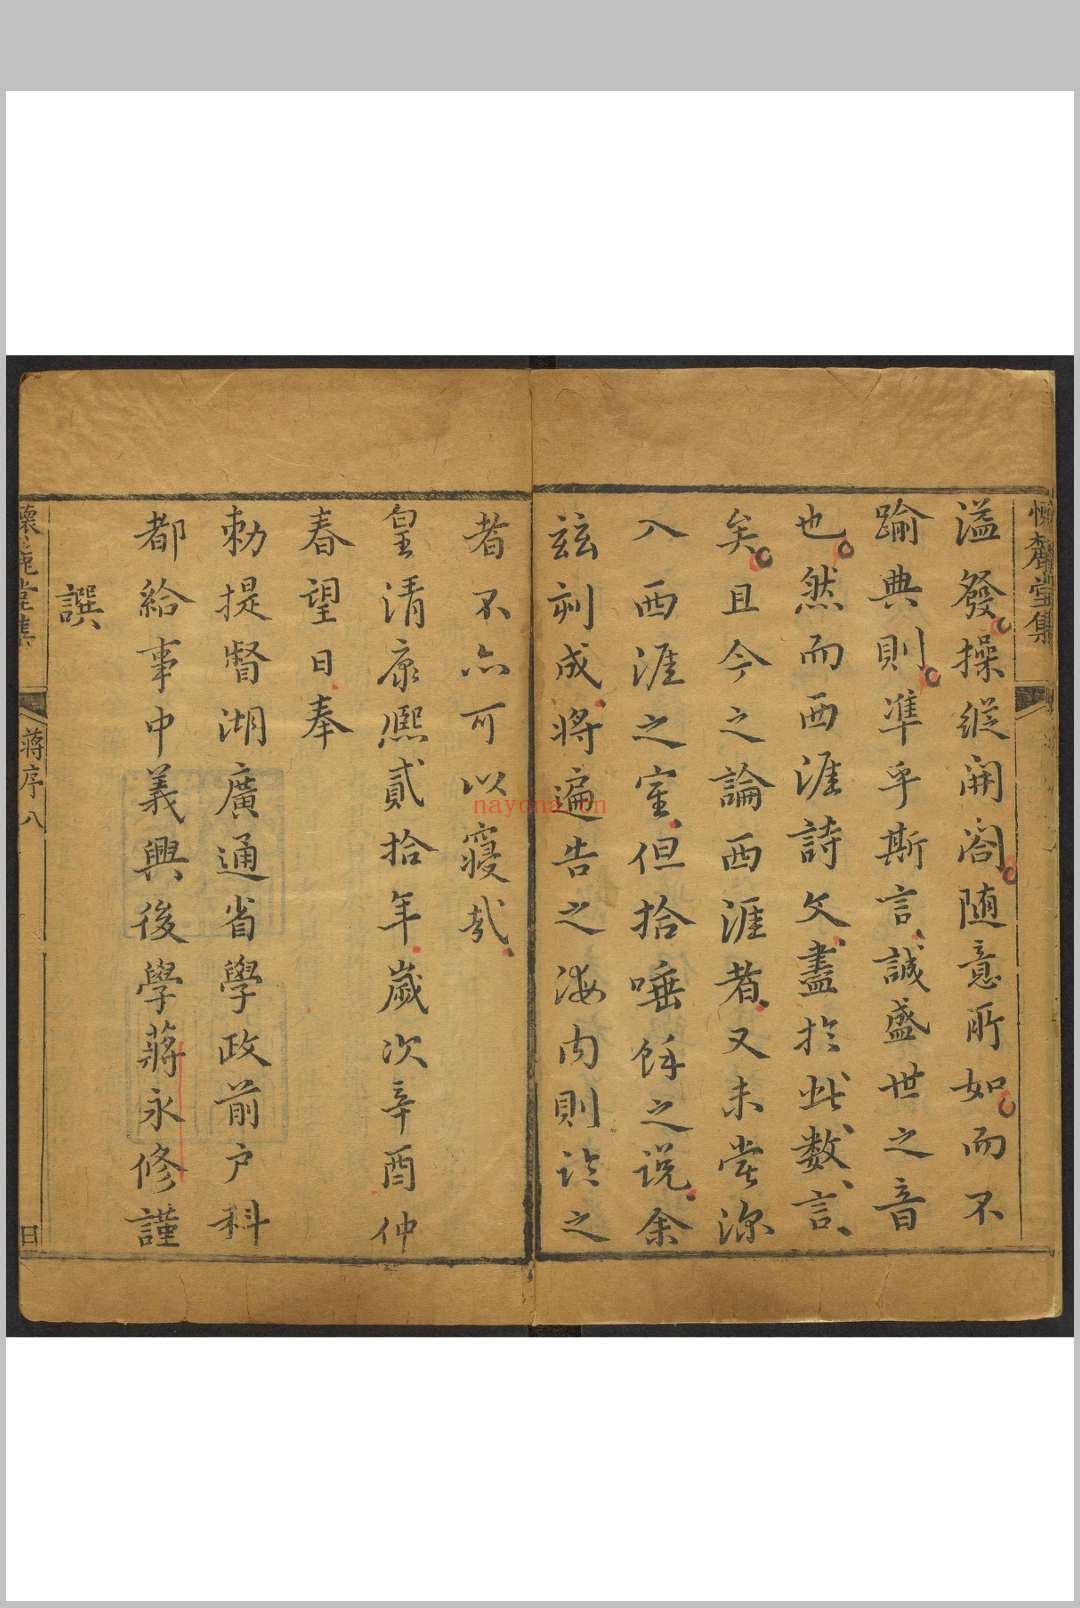 懷麓堂集
溢發操縱開闔随意所如而不
踰典則準乎斯言誠盛世之音
也然而西涯詩文盡於此數言
矣且今之論西涯者又未嘗深
入西涯之室但拾唾餘之說余
兹刻成將遍告之海内則訟之
者不亦可以寢哉
皇清康熙貳拾年歲次辛酉仲
春望日奉
勅提督湖廣通省學政前户科
都給事中義興後學蔣永修謹
譔
懷麓堂集
蔣序八
nayona.cn